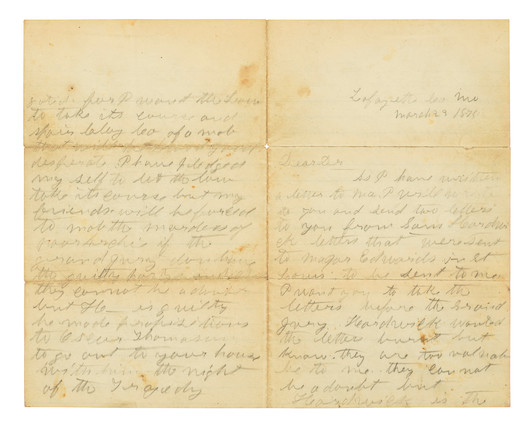 Lafayette Co Mo
March 23 18
Dear Sister
As I have written
a letter to ma I will write
to you and send two letters
to you from Sam Hardwi
ck letters that were sent
to major Edwards in St
Louis to be sent to me
I want you to take the
letters before the Grand
Jury Hardwick wanted
the letter burnt but
know they are too valuab
be to me they cannot
be a doubt but
Hardwick is the
for I want the Law
to take its course and
Clay Co of a mob
desperate I have pledged
my self to let the law
take its course but my
friends will be forced
to mob the murderers of
if the
grand jury don't
the guilty
they cannot be a doubt
but He is guilty
he made propositions
to Oscar Thomason
to go out to your house
with him the night
of the Tragedy